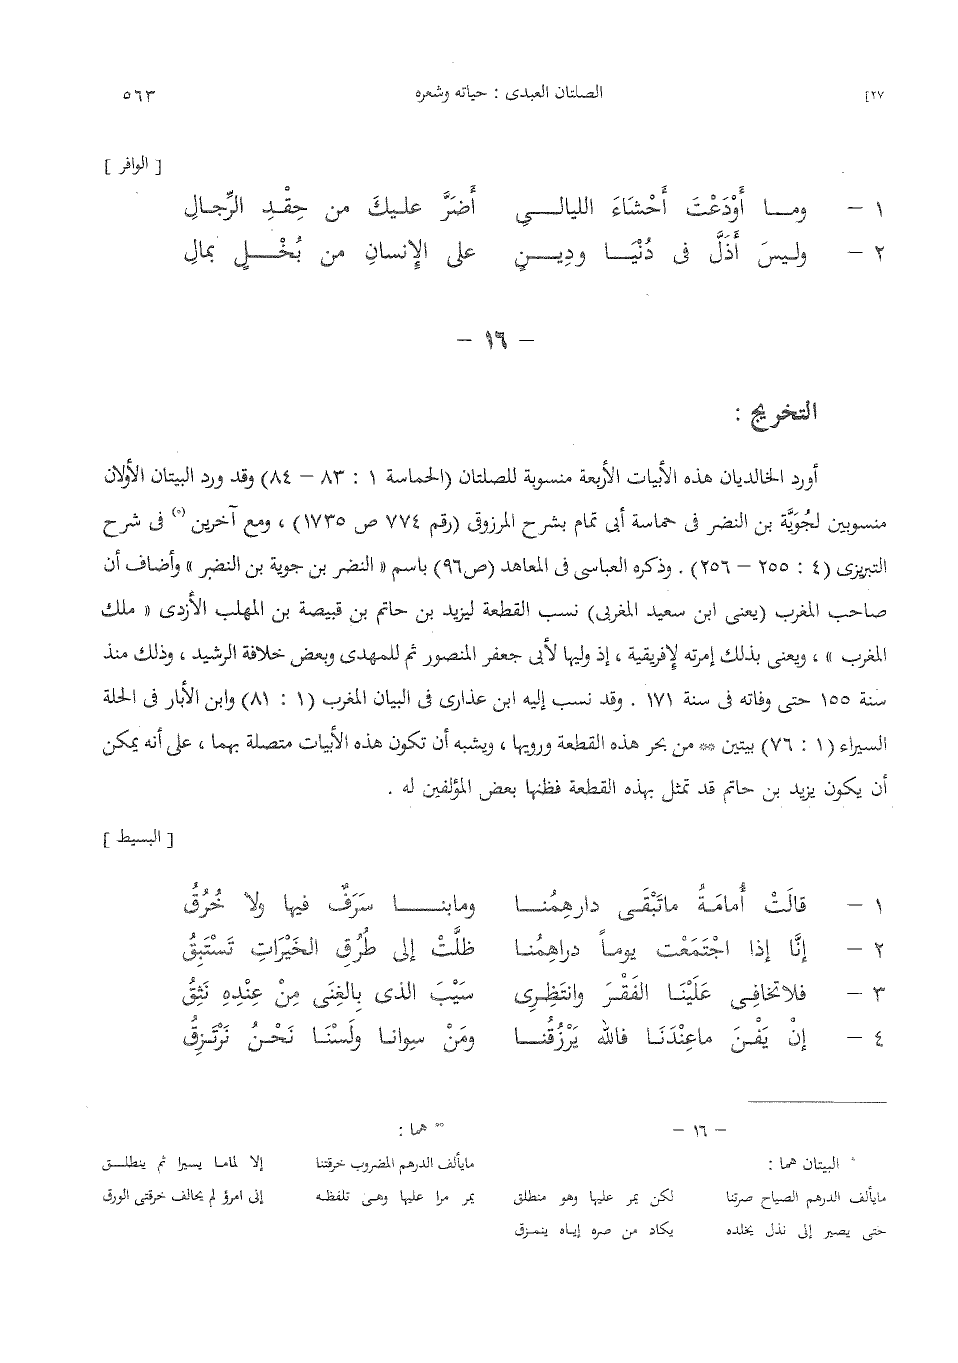 ٢٧] الصلتان العبدى : حياته وشعره ٥٦٣
[ الوافر ]
١ – ومـــا أَوْدَعْتَ أَحْشَاءَ الليالـــي أَضَرَّ عليكَ من حِقْدِ الرِّجالِ
٢ – وليسَ أَذَلَّ فى دُنْيَـــا ودِيـــنٍ على الإِنسانِ من بُخْـــلٍ بمالِ
– ١٦ –
التخريج :
أورد الخالديان هذه الأبيات الأربعة منسوبة للصلتان (الحماسة ١ : ٨٣ – ٨٤) وقد ورد البيتان الأولان
منسوبين لجُوَيَّة بن النضر فى حماسة أبى تمام بشرح المرزوقى (رقم ٧٧٤ ص ١٧٣٥) ، ومع آخرين (*) فى شرح
التبريزى (٤ : ٢٥٥ – ٢٥٦) . وذكره العباسى فى المعاهد (ص٩٦) باسم « النضر بن جوية بن النضر » وأضاف أن
صاحب المغرب (يعنى ابن سعيد المغربى) نسب القطعة ليزيد بن حاتم بن قبيصة بن المهلب الأزدى « ملك
المغرب » ، ويعنى بذلك إمرته لإفريقية ، إذ وليها لأبى جعفر المنصور ثم للمهدى وبعض خلافة الرشيد ، وذلك منذ
سنة ١٥٥ حتى وفاته فى سنة ١٧١ . وقد نسب إليه ابن عذارى فى البيان المغرب (١ : ٨١) وابن الأبار فى الحلة
السيراء (١ : ٧٦) بيتين ** من بحر هذه القطعة ورويها ، ويشبه أن تكون هذه الأبيات متصلة بهما ، على أنه يمكن
أن يكون يزيد بن حاتم قد تمثل بهذه القطعة فظنها بعض المؤلفين له .
[ البسيط ]
١ – قالَتْ أُمامَةُ ماتَبْقَى دارهِمُنـــا ومابنـــا سَرَفٌ فيها ولا خُرُقُ
٢ – إنَّا إذا اجْتَمَعْت يوماً دراهِمُنا ظلَّتْ إلى طُرُقِ الخَيْرَاتِ تَسْتَبِقُ
٣ – فلاتخافِى عَلَيْنَا الفَقْرَ وانتَظِرِى سَيْبَ الذى بِالغِنَى مِنْ عِنْدِهِ نَثِقُ
٤ – إنْ يَفْنَ ماعِنْدَنَا فالله يَرْزُقُنـــا ومَنْ سِوانا ولَسْنَا نَحْنُ نَرْتَزِقُ
– ١٦ –
* البيتان هما :
مايألف الدرهم الصياح صرتنا لكن يمر عليها وهو منطلق
حتى يصير إلى نذل يخلده يكاد من صره إياه ينمزق
** هما :
مايألف الدرهم المضروب خرقتنا إلا لماما يسيرا ثم ينطلـــق
يمر مرا عليها وهـى تلفظـه إنى امرؤ لم يحالف خرقتى الورق